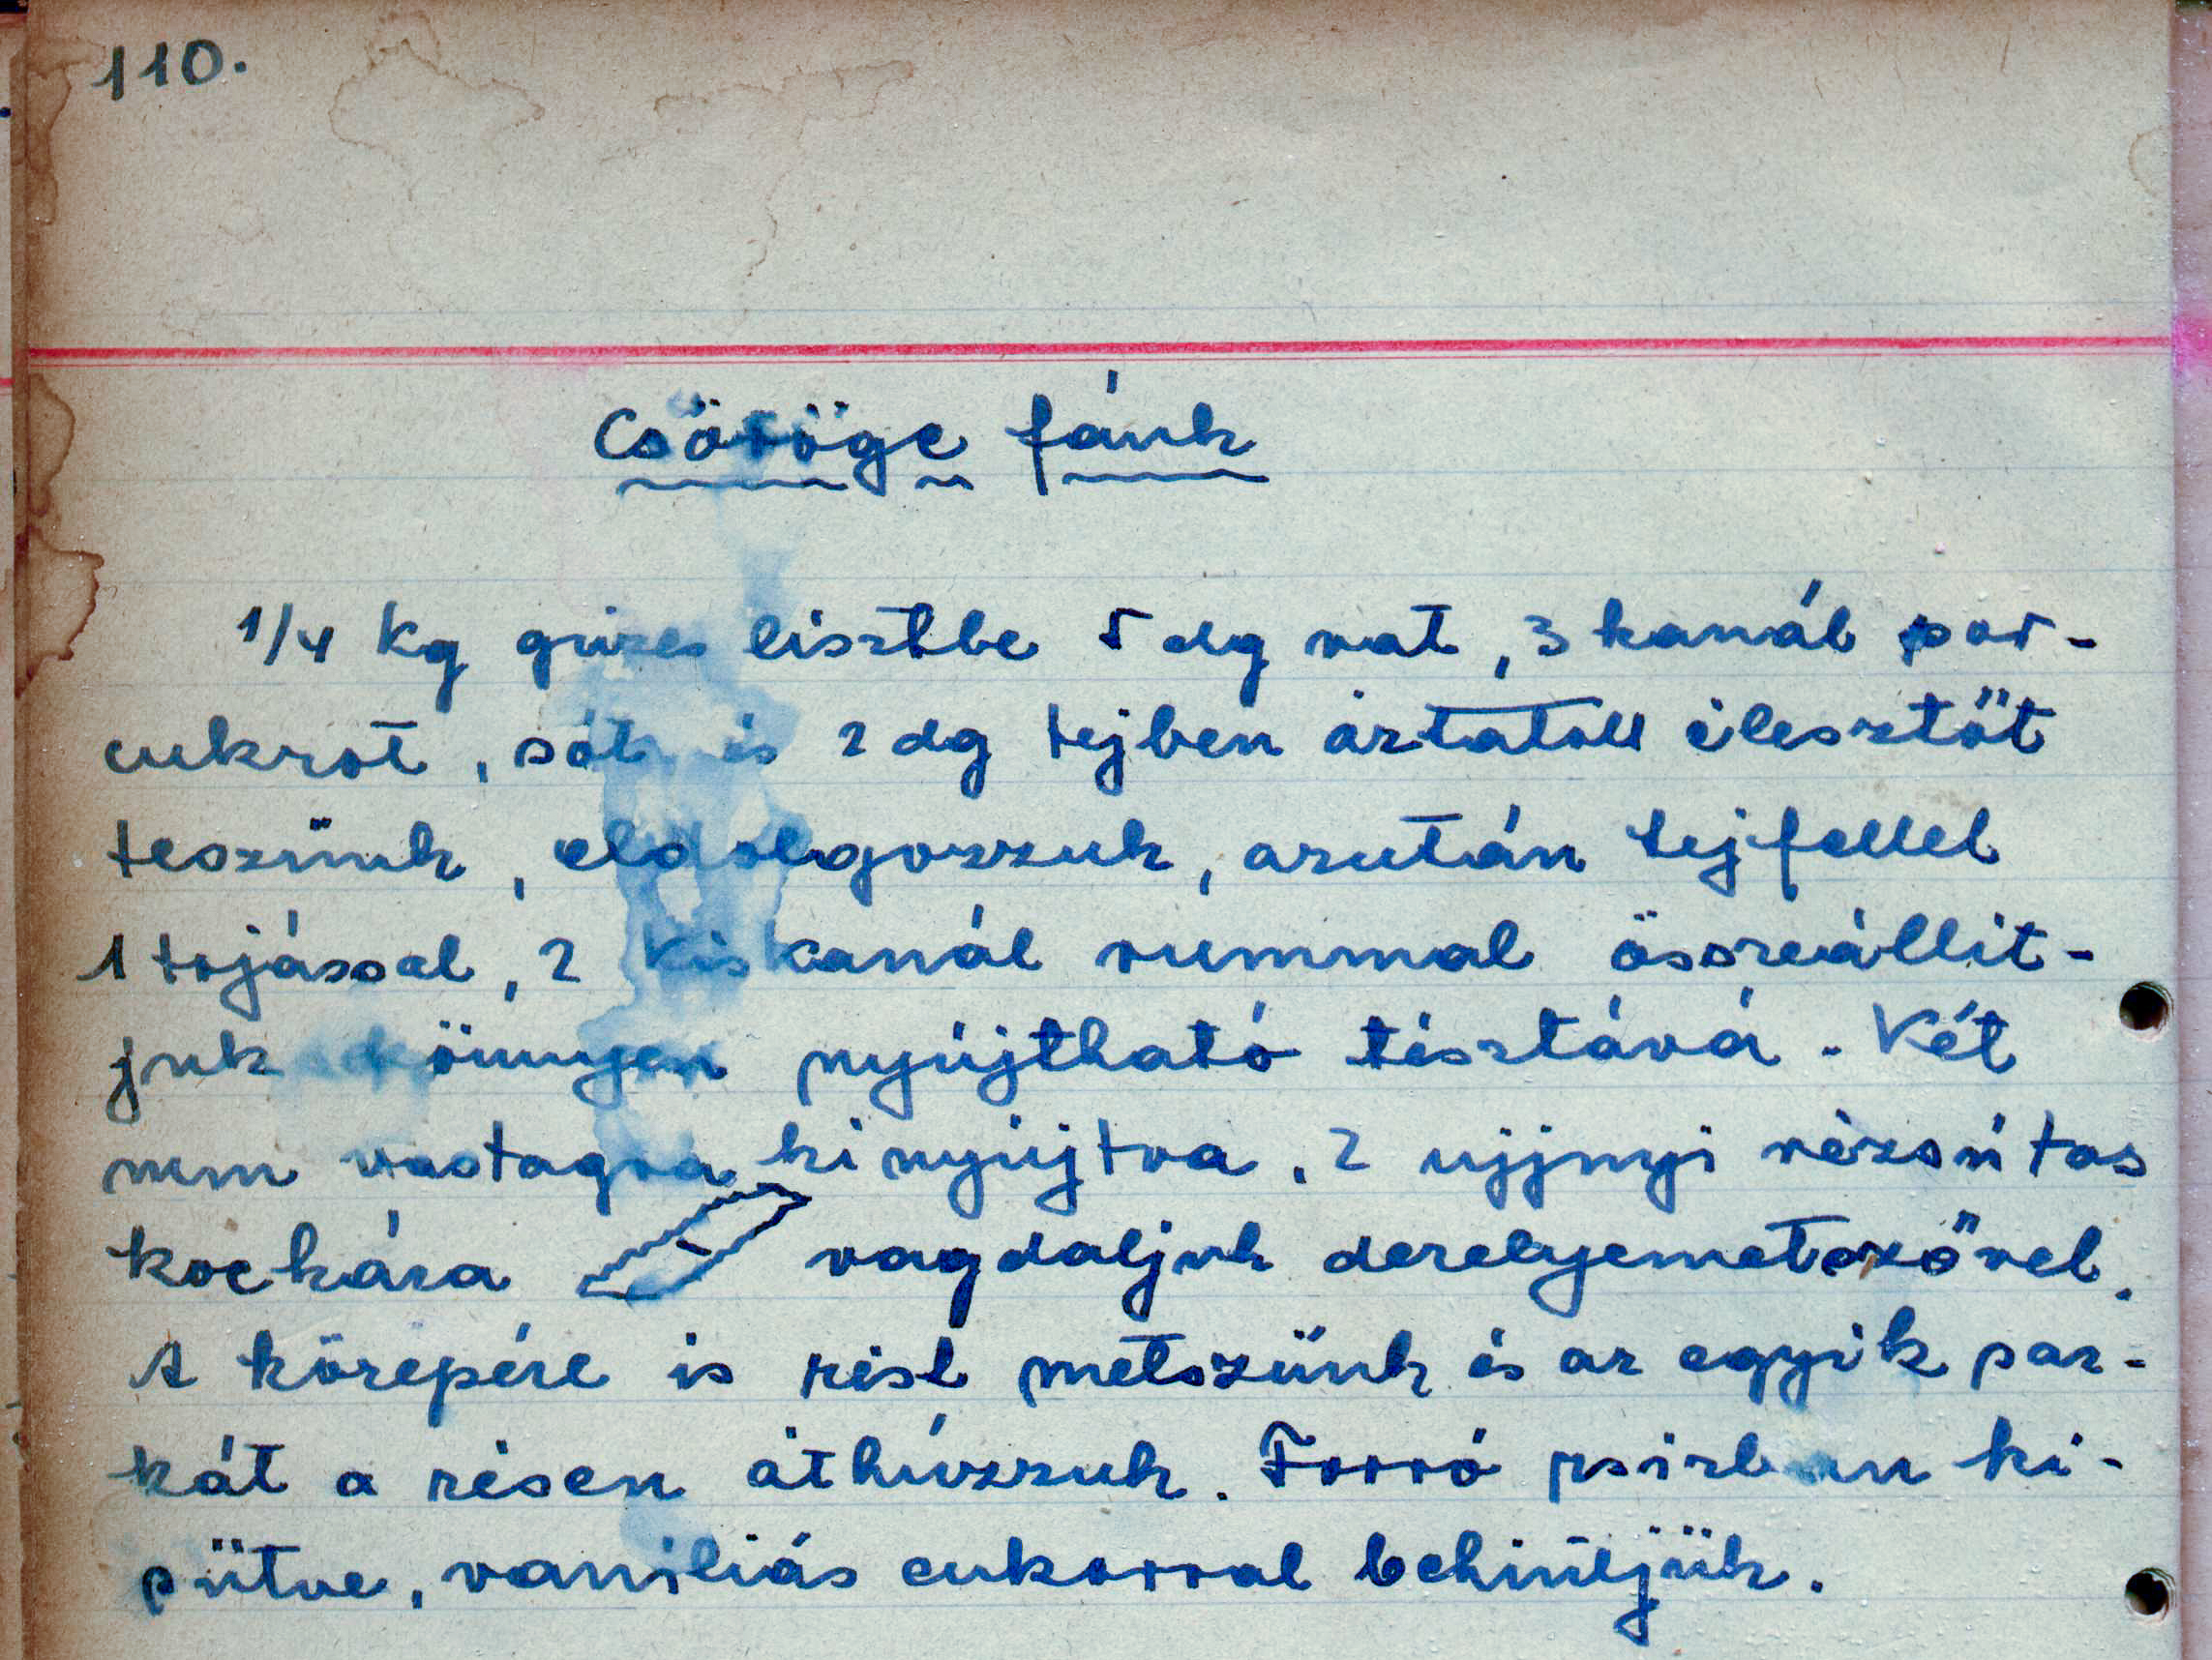 110.
Csöröge fánk
1/4 kg grizes lisztbe 5 dg vat, 3 kanál por-
cukrot, sót és 2 dg tejben áztatott élesztőt
teszünk, eldolgozzuk, azután tejfellel
1 tojással, 2 kiskanál rummal összeállit-
juk könnyen nyújtható tésztává. Két
nem vastagra kinyújtva, 2 ujjnyi rézsútas
kockára vagdaljuk derelyemetszővel.
A közepére is rést metszünk és az egyik sar-
kát a résen áthúzzuk. Forró zsirban ki-
sütve, vaniliás cukorral behintjük.